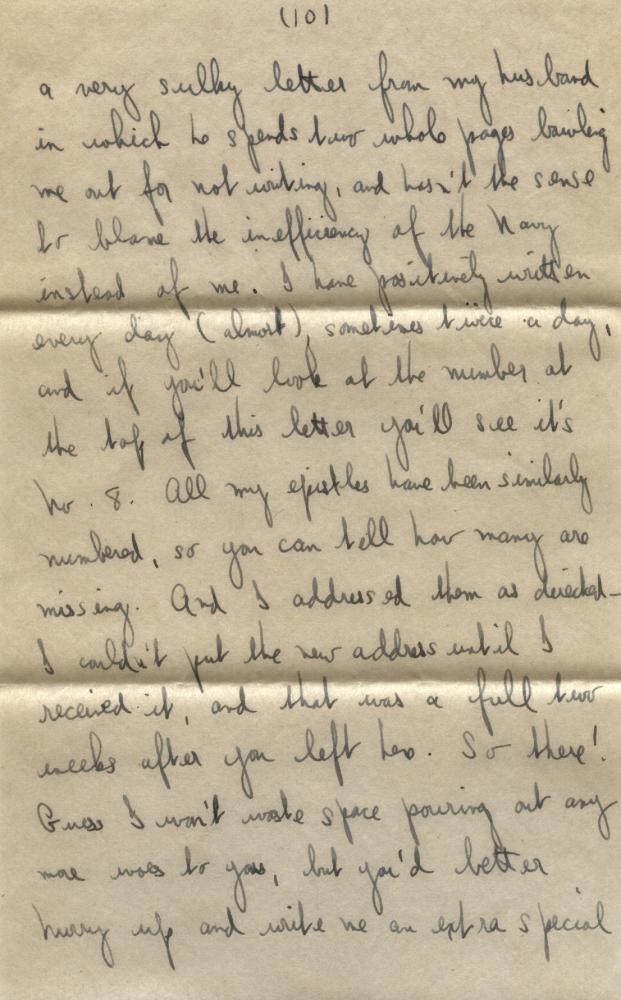 (10)
a very sulky letter from my husband
in which he spends two whole pages bawling
me out for not writing, and hasn't the sense
to blame the inefficiency of the Navy
instead of me. I have positively written
every day (almost), sometimes twice a day,
and if you'll look at the number at
the top of this letter you'll see it's
No. 8. All my epistles have been similarly
numbered, so you can tell how many are
missing. And I addressed them as directed -
I couldn't put the new address until I
received it, and that was a full two
weeks after you left here. So there!
Guess I won't waste space pouring out any
more woes to you, but you'd better
hurry up and write me an extra special